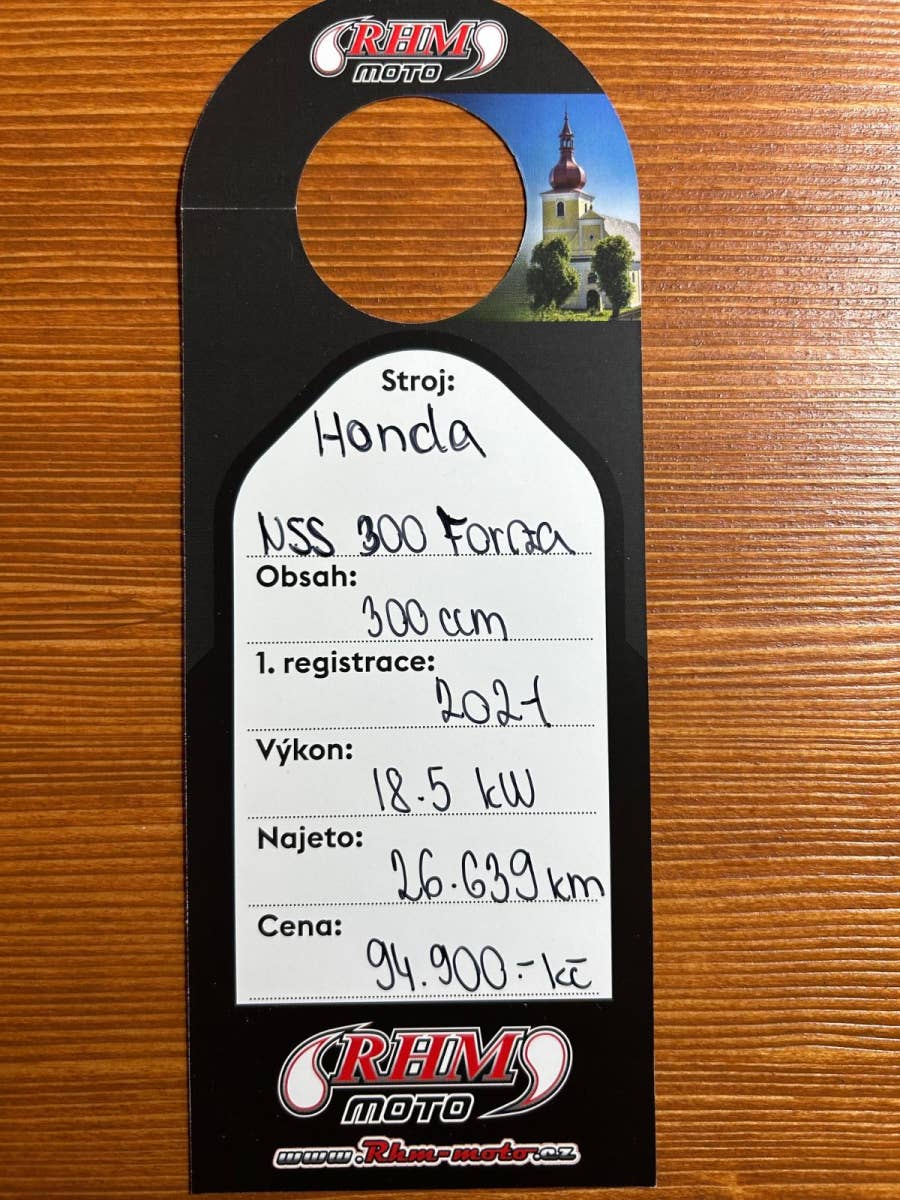 RHM
MOTO
Stroj:
Honda
NSS 300 Forza
Obsah:
300 ccm
1. registrace:
2021
Výkon:
18.5 kW
Najeto:
26.639 km
Cena:
94.900.- kč
RHM
MOTO
www.Rhm-moto.cz